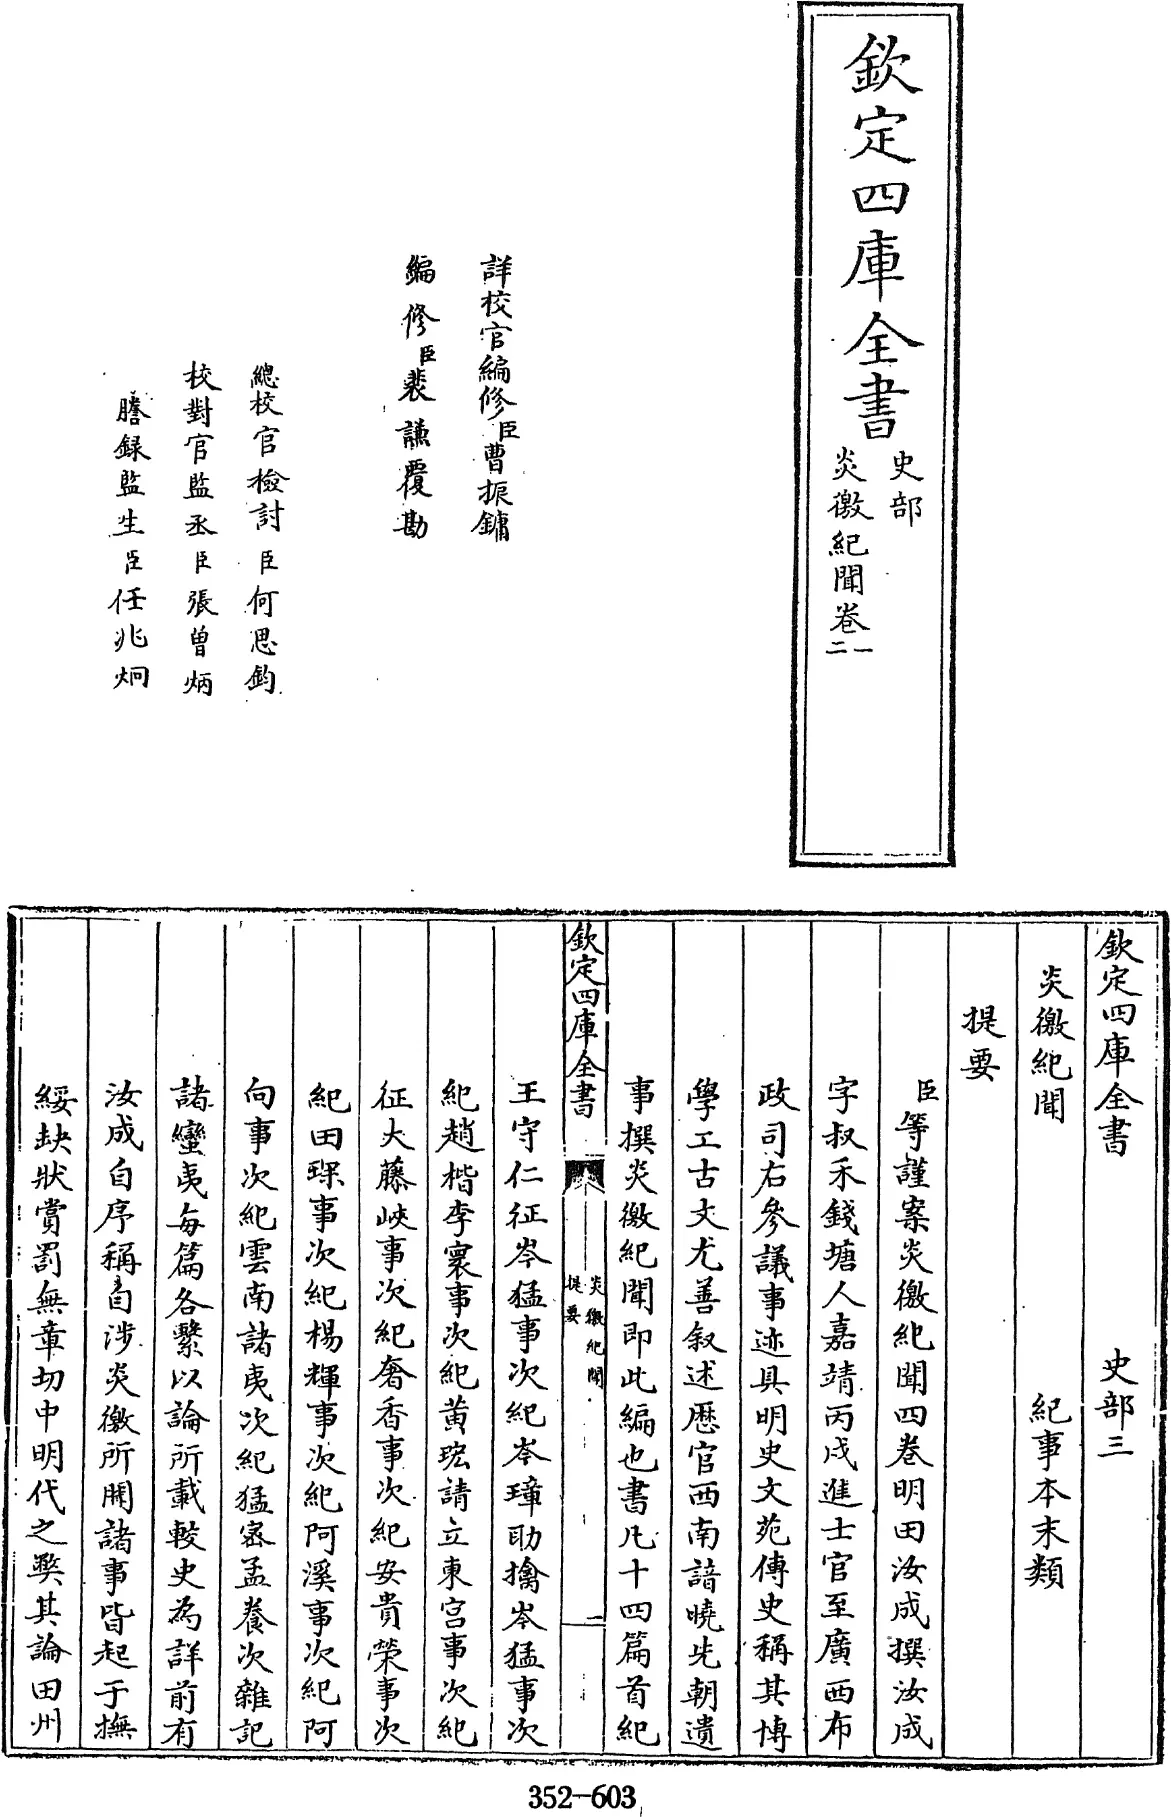 欽定四庫全書
史部
炎徼紀聞卷一
二
詳校官編修臣曹振鏞
編修臣裴謙覆勘
總校官檢討臣何思鈞
校對官監丞臣張曾炳
謄録監生臣任兆炯
欽定四庫全書 史部三
炎徼紀聞 紀事本末類
提要
臣等謹案炎徼紀聞四卷明田汝成撰汝成
字叔禾錢塘人嘉靖丙戌進士官至廣西布
政司右參議事迹具明史文苑傳史稱其博
學工古文尤善叙述歴官西南諳曉先朝遺
事撰炎徼紀聞即此編也書凡十四篇首紀
欽定四庫全書
炎徼紀聞
提要
二
王守仁征岑猛事次紀岑璋助擒岑猛事次
紀趙楷李寰事次紀黄珤請立東宫事次紀
征大藤峽事次紀奢香事次紀安貴榮事次
紀田琛事次紀楊輝事次紀阿溪事次紀阿
向事次紀雲南諸夷次紀猛密孟養次雜記
諸蠻夷每篇各繫以論所載較史為詳前有
汝成自序稱自涉炎徼所聞諸事皆起于撫
綏缺狀賞罰無章切中明代之弊其論田州
352-603